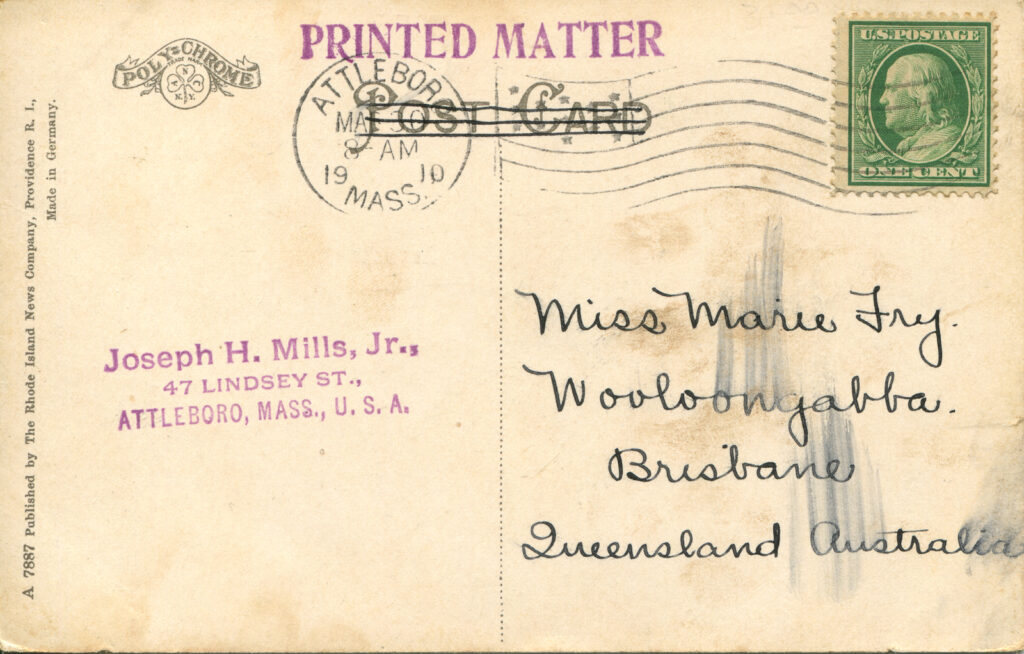 PRINTED MATTER
POLY-CHROME
TRADE MARK
N
A N
N.Y.
POST CARD
ATTLEBORO
MA 30
8-AM
19 10
MASS.
U.S. POSTAGE
ONE CENT
A 7887 Published by The Rhode Island News Company, Providence R. I.,
Made in Germany.
Joseph H. Mills, Jr.,
47 LINDSEY ST.,
ATTLEBORO, MASS., U. S. A.
Miss Marie Fry.
Wooloongabba.
Brisbane
Queensland Australia